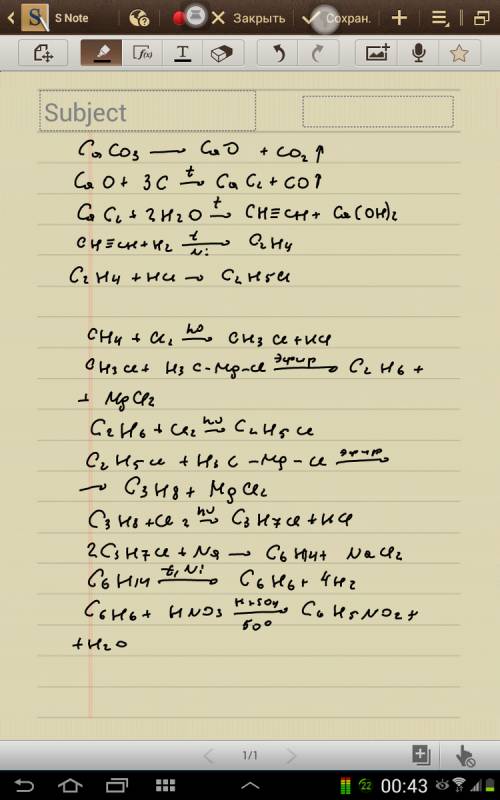 S Note
Закрыть
Сохран.
Subject
CaCO3 → CaO + CO2↑
CaO + 3C →t CaC2 + CO↑
CaC2 + 2H2O →t CH≡CH + Ca(OH)2
CH≡CH + H2 →t Ni C2H4
C2H4 + HCl → C2H5Cl
CH4 + Cl2 →hν CH3Cl + HCl
CH3Cl + H3C-Mg-Cl →эфир C2H6 +
+ MgCl2
C2H6 + Cl2 →hν C2H5Cl
C2H5Cl + H3C-Mg-Cl →эфир
→ C3H8 + MgCl2
C3H8 + Cl2 →hν C3H7Cl + HCl
2C3H7Cl + Na → C6H14 + NaCl2
C6H14 →t, Ni C6H6 + 4H2
C6H6 + HNO3 →H2SO4 500 C6H5NO2 +
+ H2O
1/1
22
00:43